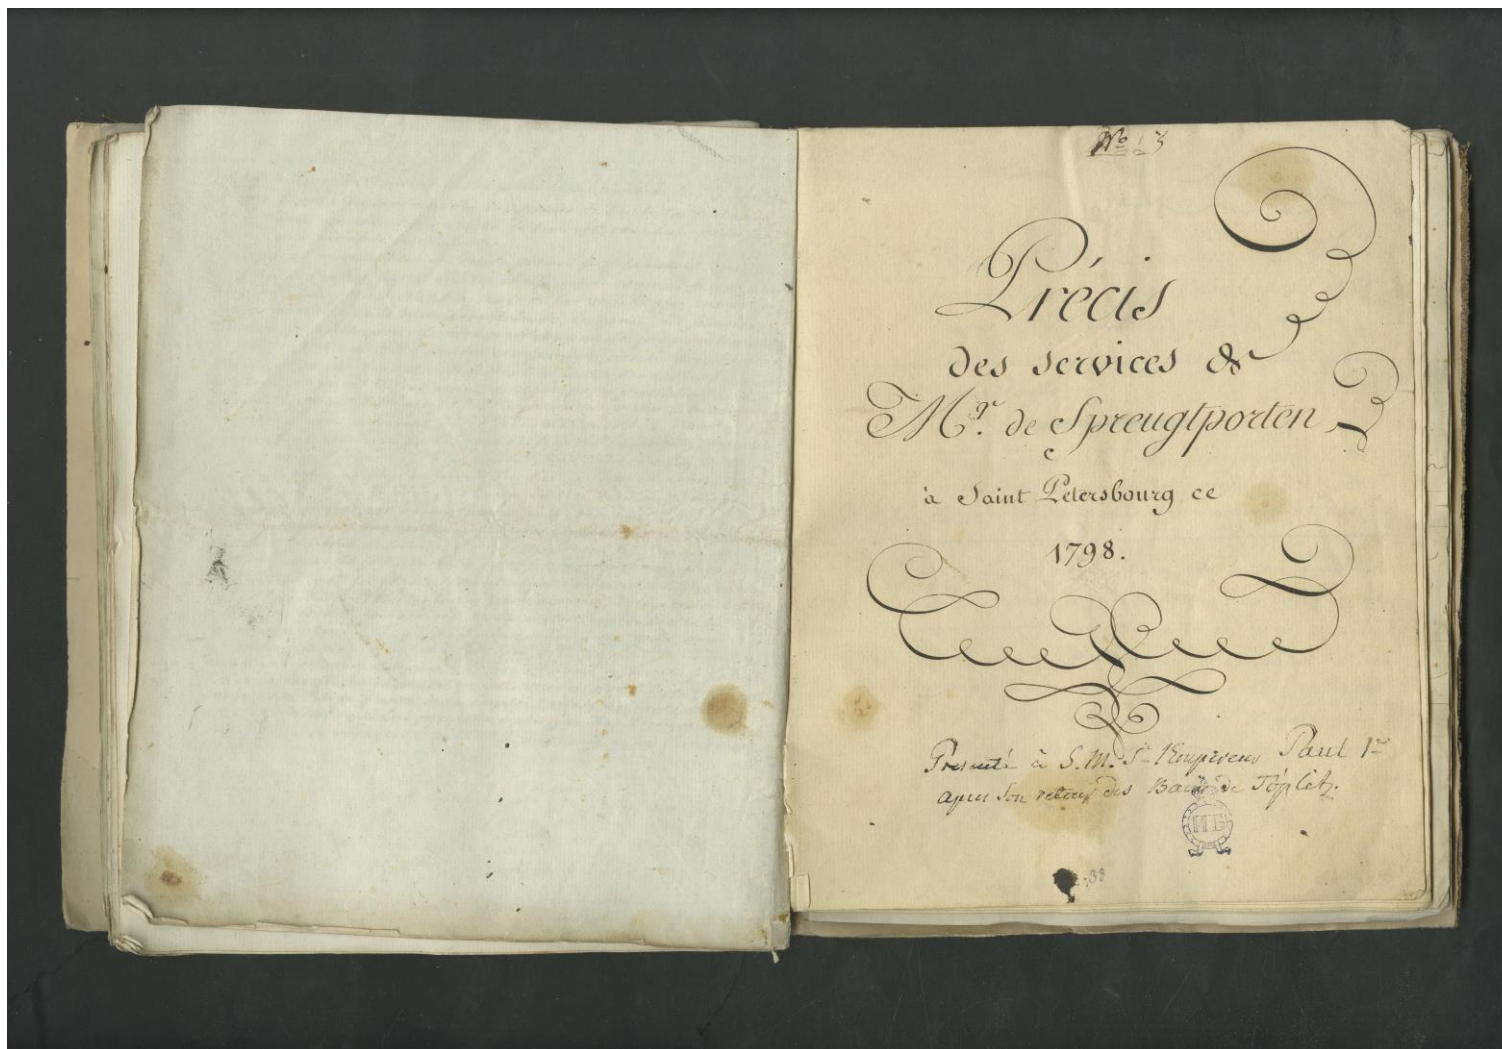 No 13
Précis
des services de
Mr. de Sprengtporten
à Saint Petersbourg ce
1798.
Presenté à S.M. l'Empereur Paul 1er
apres son retour des Bains de Töplitz.